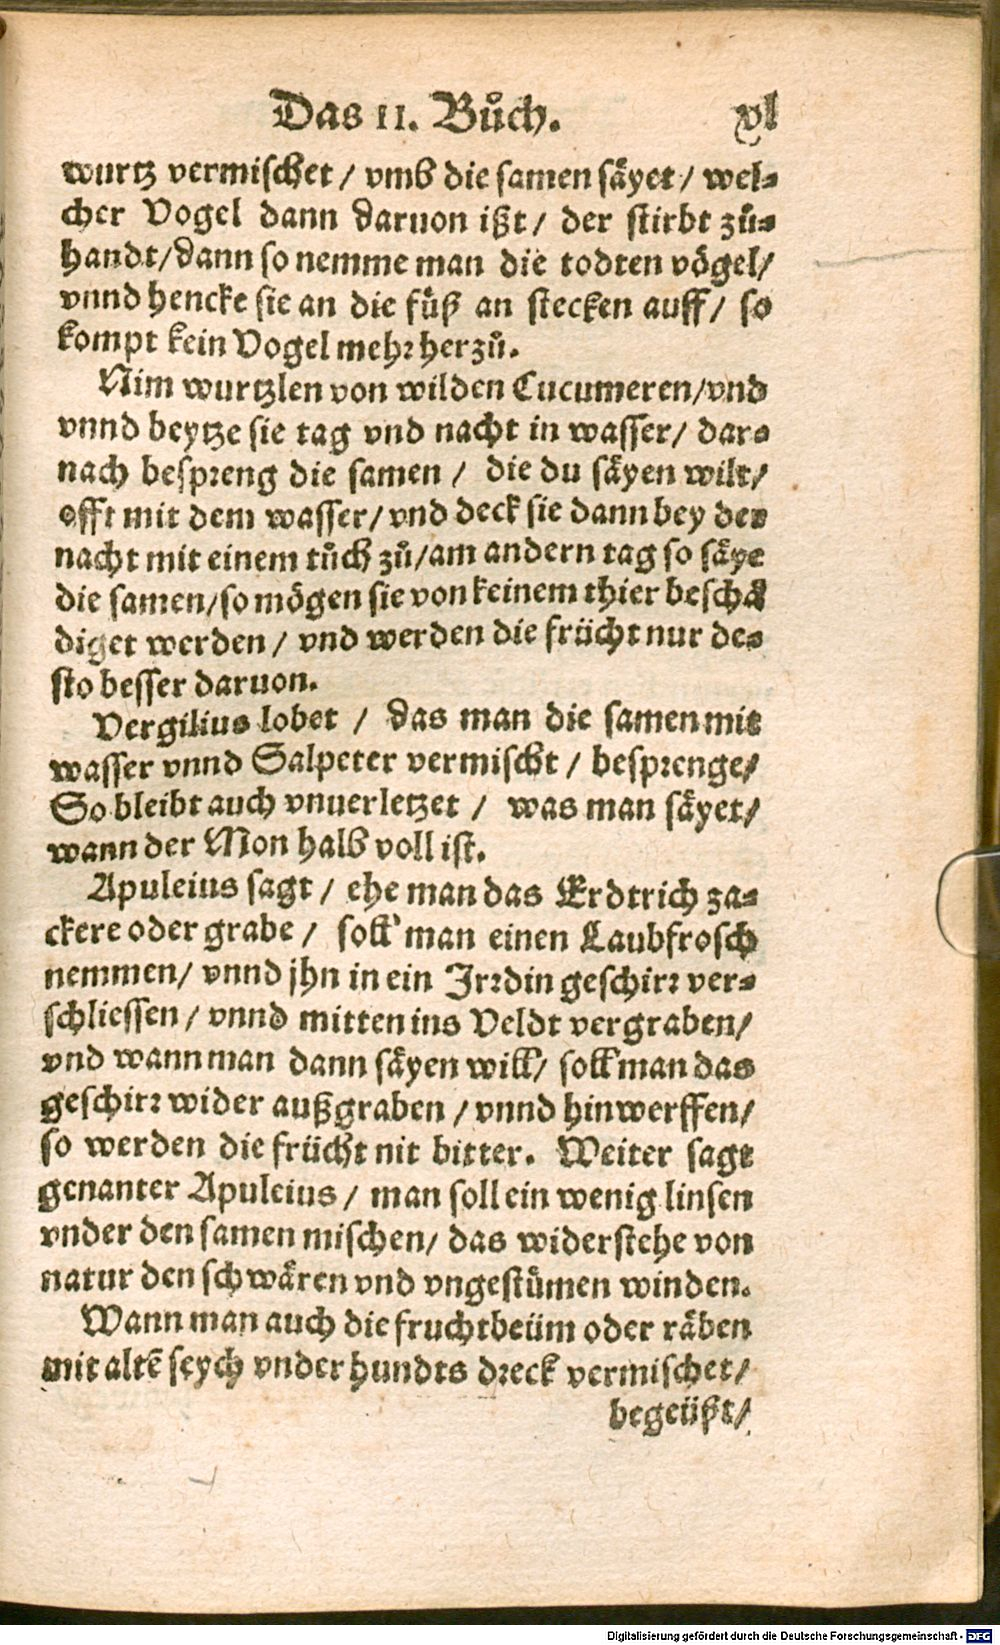 Das II. Bůch. xl
wurtz vermischet / vmb die samen säyet / wel-
cher Vogel dann daruon ißt / der stirbt zů-
handt / dann so nemme man die todten vögel /
vnnd hencke sie an die füß an stecken auff / so
kompt kein Vogel mehr herzů.
Nim wurtzlen von wilden Cucumeren / vnd
vnnd beytze sie tag vnd nacht in wasser / dar-
nach bespreng die samen / die du säyen wilt /
offt mit dem wasser / vnd deck sie dann bey der
nacht mit einem tůch zů / am andern tag so säye
die samen / so mögen sie von keinem thier beschä
diget werden / vnd werden die frücht nur de-
sto besser daruon.
Vergilius lobet / das man die samen mit
wasser vnnd Salpeter vermischt / besprenge /
So bleibt auch vnuerletzet / was man säyet /
wann der Mon halb voll ist.
Apuleius sagt / ehe man das Erdtrich za-
ckere oder grabe / soll man einen Laubfrosch
nemmen / vnnd jhn in ein Jrrdin geschirr ver-
schliessen / vnnd mitten ins Veldt vergraben /
vnd wann man dann säyen will / soll man das
geschirr wider außgraben / vnnd hinwerffen /
so werden die frücht nit bitter. Weiter sagt
genanter Apuleius / man soll ein wenig linsen
vnder den samen mischen / das widerstehe von
natur den schwären vnd vngestümen winden.
Wann man auch die fruchtbeüm oder räben
mit altē seych vnder hundts dreck vermischet /
begeüßt /
Digitalisierung gefördert durch die Deutsche Forschungsgemeinschaft - DFG